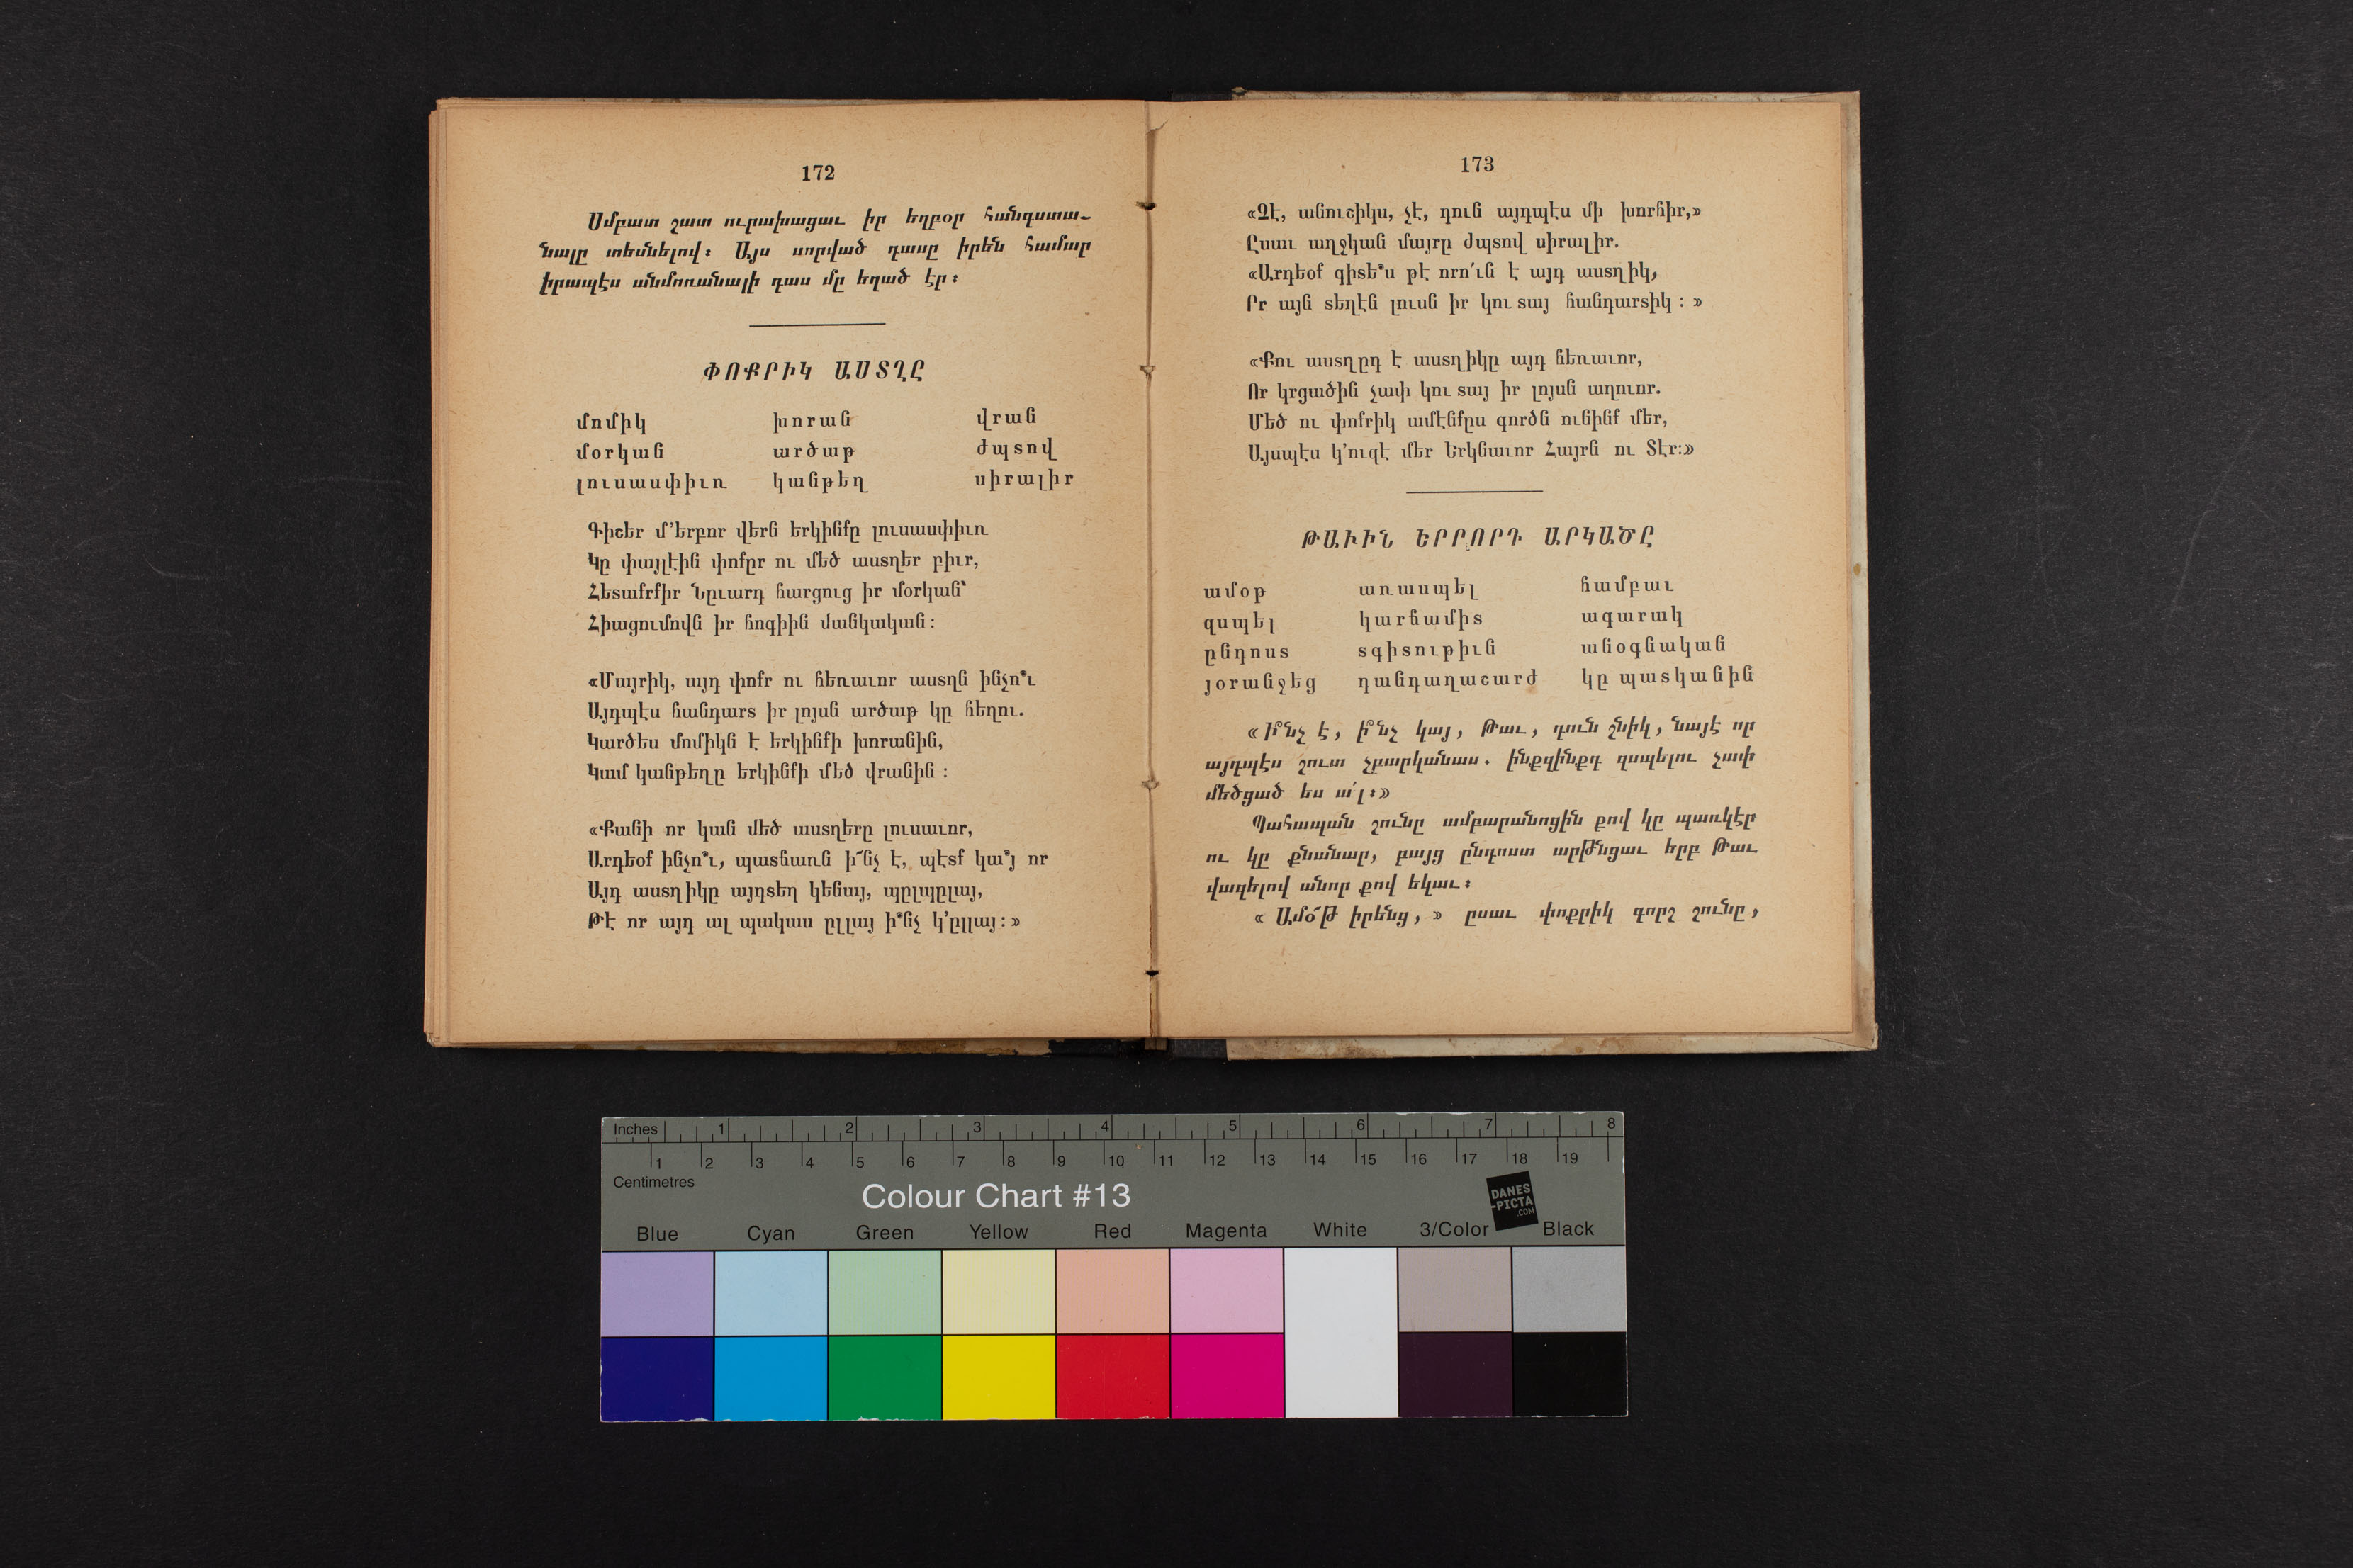 172
Սմբատ շատ ուրախացաւ իր եղբօր հանգստա-
նալը տեսնելով։ Այս սորված դասը իրեն համար
իրապէս անմոռանալի դաս մը եղած էր։
ՓՈՔՐԻԿ ԱՍՏՂԸ
մոմիկ խորան վրան
մօրկան արծաթ ժպտով
լուսասփիւռ կանթեղ սիրալիր
Գիշեր մ’երբոր վերն երկինքը լուսասփիւռ
Կը փայլէին փոքըր ու մեծ աստղեր բիւր,
Հետաքրքիր Նըւարդ հարցուց իր մօրկան՝
Հիացումովն իր հոգիին մանկական։
«Մայրիկ, այդ փոքր ու հեռաւոր աստղն ինչո՞ւ
Այդպէս հանդարտ իր լոյսն արծաթ կը հեղու.
Կարծես մոմիկն է երկինքի խորանին,
Կամ կանթեղը երկինքի մեծ վրանին։
«Քանի որ կան մեծ աստղերը լուսաւոր,
Արդեօք ինչո՞ւ, պատճառն ի՞նչ է, պէտք կա՞յ որ
Այդ աստղիկը այդտեղ կենայ, պըլպըլայ,
Թէ որ այդ ալ պակաս ըլլայ ի՞նչ կ’ըլլայ։»
173
«Չէ, անուշիկս, չէ, դուն այդպէս մի խորհիր,»
Ըսաւ աղջկան մայրը ժպտով սիրալիր.
«Արդեօք գիտե՞ս թէ որո՛ւն է այդ աստղիկ,
Որ այն տեղէն լուսն իր կու տայ հանդարտիկ։»
«Քու աստղըդ է աստղիկը այդ հեռաւոր,
Որ կրցածին չափ կու տայ իր լոյսն աղուոր.
Մեծ ու փոքրիկ ամէնքըս գործն ունինք մեր,
Այսպէս կ’ուզէ մեր Երկնաւոր Հայրն ու Տէր։»
ԹԱՒԻՆ ԵՐՐՈՐԴ ԱՐԿԱԾԸ
ամօթ առասպել համբաւ
զսպել կարճամիտ ագարակ
ընդոստ տգիտութիւն անօգնական
յօրանջեց դանդաղաշարժ կը պատկանին
«Ի՞նչ է, ի՞նչ կայ, Թաւ, դուն շնիկ, նայէ որ
այդպէս շուտ չբարկանաս. ինքզինքդ զսպելու չափ
մեծցած ես ա՛լ։»
Պահապան շունը ամբարանոցին քով կը պառկէր
ու կը քնանար, բայց ընդոստ արթնցաւ երբ Թաւ
վազելով անոր քով եկաւ։
«Ամօ՜թ իրենց,» ըսաւ փոքրիկ գորշ շունը,
Inches 1 2 3 4 5 6 7 8
1 2 3 4 5 6 7 8 9 10 11 12 13 14 15 16 17 18 19
Centimetres
Colour Chart #13
DANES
-PICTA
.COM
Blue Cyan Green Yellow Red Magenta White 3/Color Black